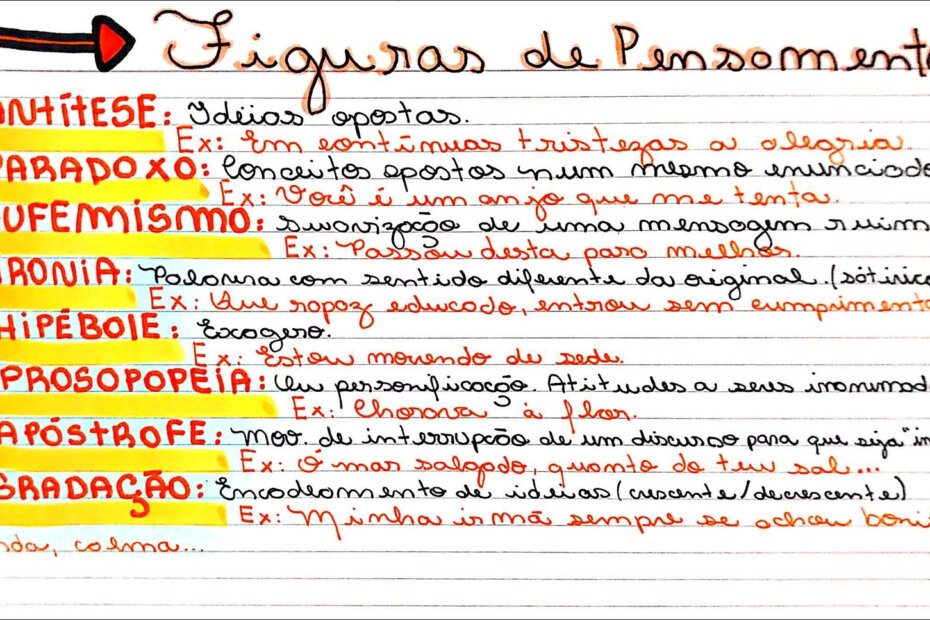 Figuras de Pensament
ANTÍTESE: Idéias opostas.
Ex: Em contínuas tristezas a alegria.
PARADOXO: Conceitos opostos num mesmo enunciado
Ex: Você é um anjo que me tenta.
UFEMISMO: Suavização de uma mensagem ruim
Ex: Passou desta para melhor.
RONIA: Palavra com sentido diferente da original. (satírico
Ex: Que rapaz educado, entrou sem cumprimenta
HIPÉBOLE: Exagero.
Ex: Estou morrendo de sede.
PROSOPOPEÍA: Ou personificação. Atitudes a seus inanimad
Ex: Chorava à flor.
APÓSTROFE: Moo. de interrupção de um discurso para que seja "in
Ex: Ó mar salgado, quanto do teu sal...
GRADAÇÃO: Encadeamento de idéias (crescente/decrescente)
Ex: Minha irmã sempre se achou boni
nda, calma...